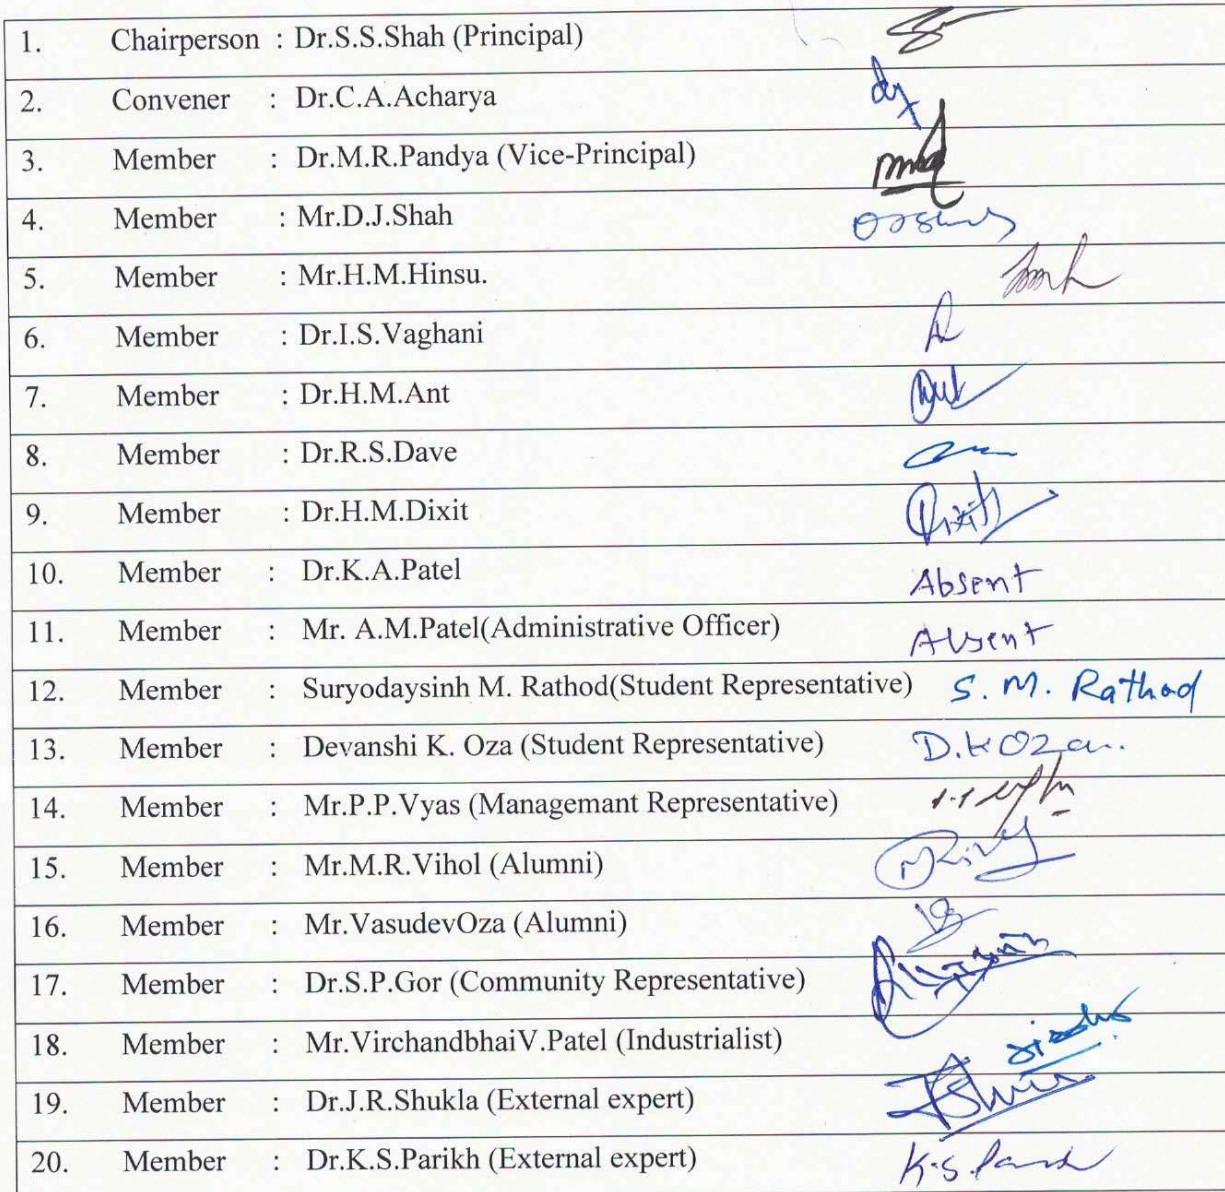 1. Chairperson : Dr.S.S.Shah (Principal)
2. Convener : Dr.C.A.Acharya
3. Member : Dr.M.R.Pandya (Vice-Principal)
4. Member : Mr.D.J.Shah
5. Member : Mr.H.M.Hinsu.
6. Member : Dr.I.S.Vaghani
7. Member : Dr.H.M.Ant
8. Member : Dr.R.S.Dave
9. Member : Dr.H.M.Dixit Dixit
10. Member : Dr.K.A.Patel Absent
11. Member : Mr. A.M.Patel(Administrative Officer) Absent
12. Member : Suryodaysinh M. Rathod(Student Representative) S. M. Rathod
13. Member : Devanshi K. Oza (Student Representative) D.K Oza.
14. Member : Mr.P.P.Vyas (Managemant Representative)
15. Member : Mr.M.R.Vihol (Alumni)
16. Member : Mr.VasudevOza (Alumni)
17. Member : Dr.S.P.Gor (Community Representative)
18. Member : Mr.VirchandbhaiV.Patel (Industrialist)
19. Member : Dr.J.R.Shukla (External expert)
20. Member : Dr.K.S.Parikh (External expert)